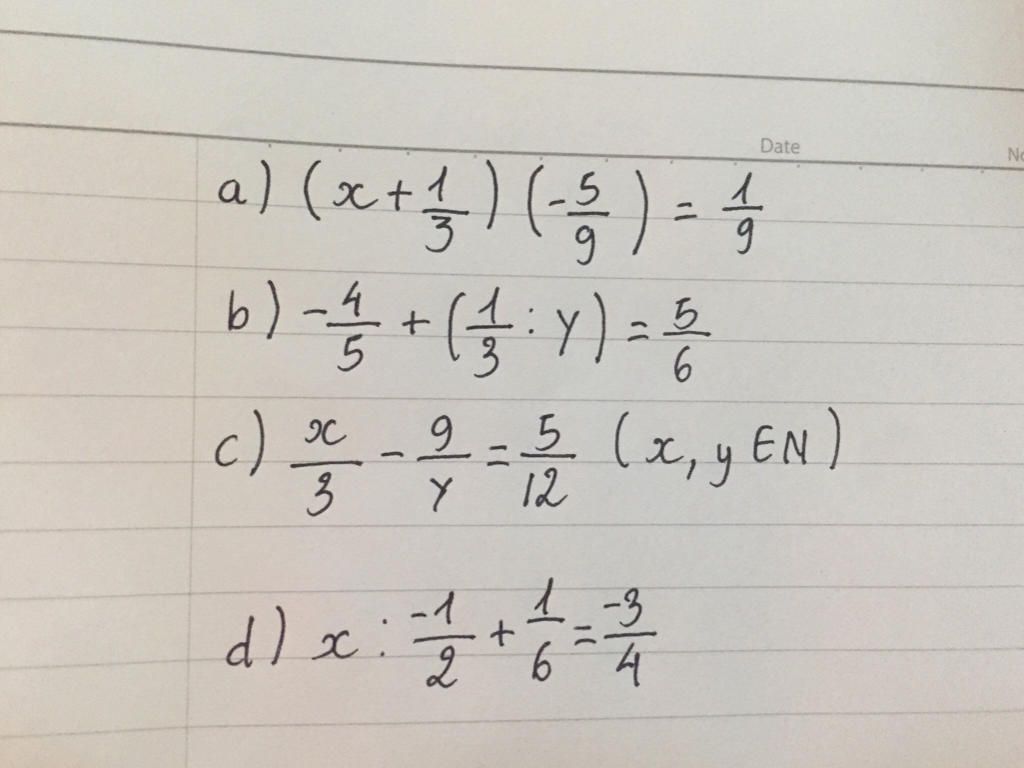 Date
No
a) (x + 1/3) (-5/9) = 1/9
b) -4/5 + (1/3 : y) = 5/6
c) x/3 - 9/y = 5/12 (x, y ∈ N)
d) x : -1/2 + 1/6 = -3/4